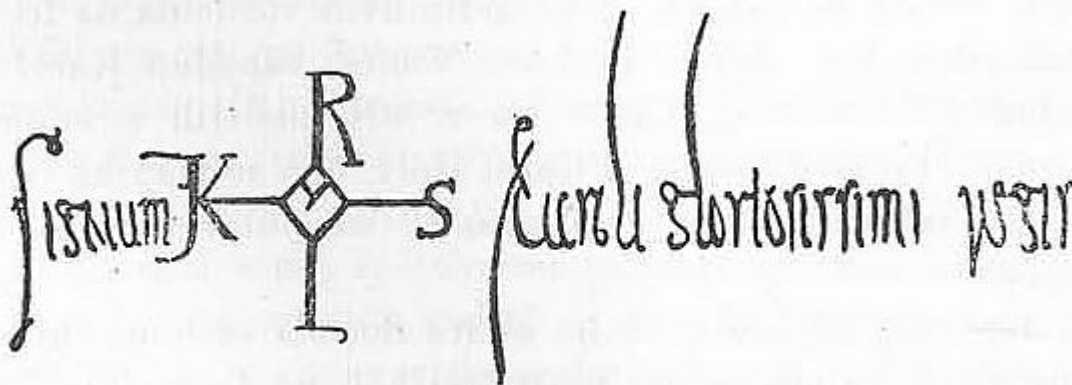 Signum KRLS Karoli gloriosissimi regis